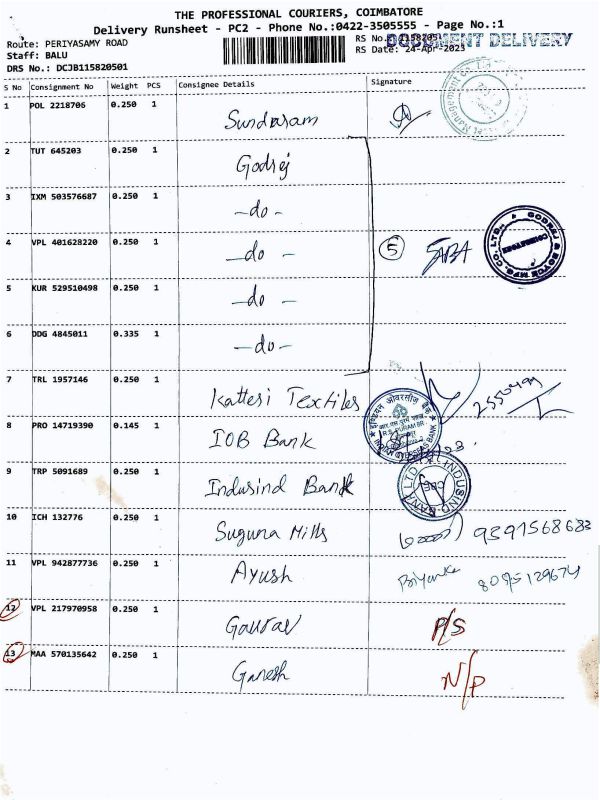 THE PROFESSIONAL COURIERS, COIMBATORE
Delivery Runsheet - PC2 - Phone No.:0422-3505555 - Page No.:1
Route: PERIYASAMY ROAD
Staff: BALU
DRS No.: DCJB115820501
RS No.
DOCUMENT DELIVERY
RS Date: 24-Apr-2023
S No Consignment No Weight PCS Consignee Details Signature
1 POL 2218706 0.250 1 Sundaram
2 TUT 645203 0.250 1 Godrej
3 IXM 503576687 0.250 1 -do-
4 VPL 401628220 0.250 1 -do- 5 SABA
GODREJ & BOYCE MFG. CO. LTD. COIMBATORE
5 KUR 529510498 0.250 1 -do-
6 DDG 4845011 0.335 1 -do-
7 TRL 1957146 0.250 1 Katteri Textiles
8 PRO 14719390 0.145 1 IOB Bank
इण्डियन ओवरसीज़ बैंक
R.S. PURAM BR
INDIAN OVERSEAS BANK
9 TRP 5091689 0.250 1 Indusind Bank
INDUSIND BANK LTD
CBE
10 ICH 132776 0.250 1 Suguna Mills 9391568683
11 VPL 942877736 0.250 1 Ayush Priyanka 8095129674
12 VPL 217970958 0.250 1 Gaurav P/S
13 MAA 570135642 0.250 1 Ganesh N/P